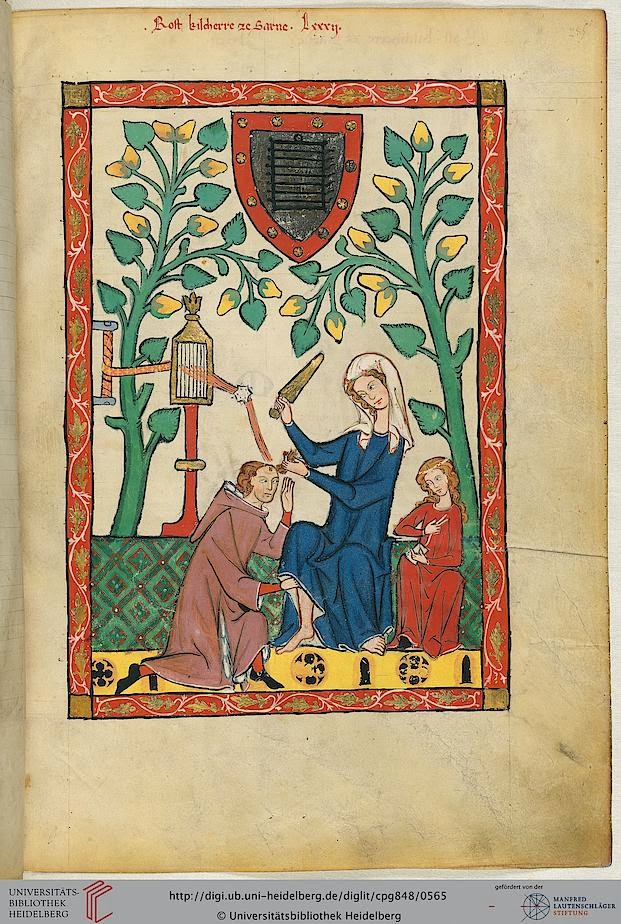 Rost kilcherre ze Sarne. Lxxxij.
UNIVERSITÄTS-
BIBLIOTHEK
HEIDELBERG
http://digi.ub.uni-heidelberg.de/diglit/cpg848/0565
© Universitätsbibliothek Heidelberg
gefördert von der
MANFRED
LAUTENSCHLÄGER
STIFTUNG